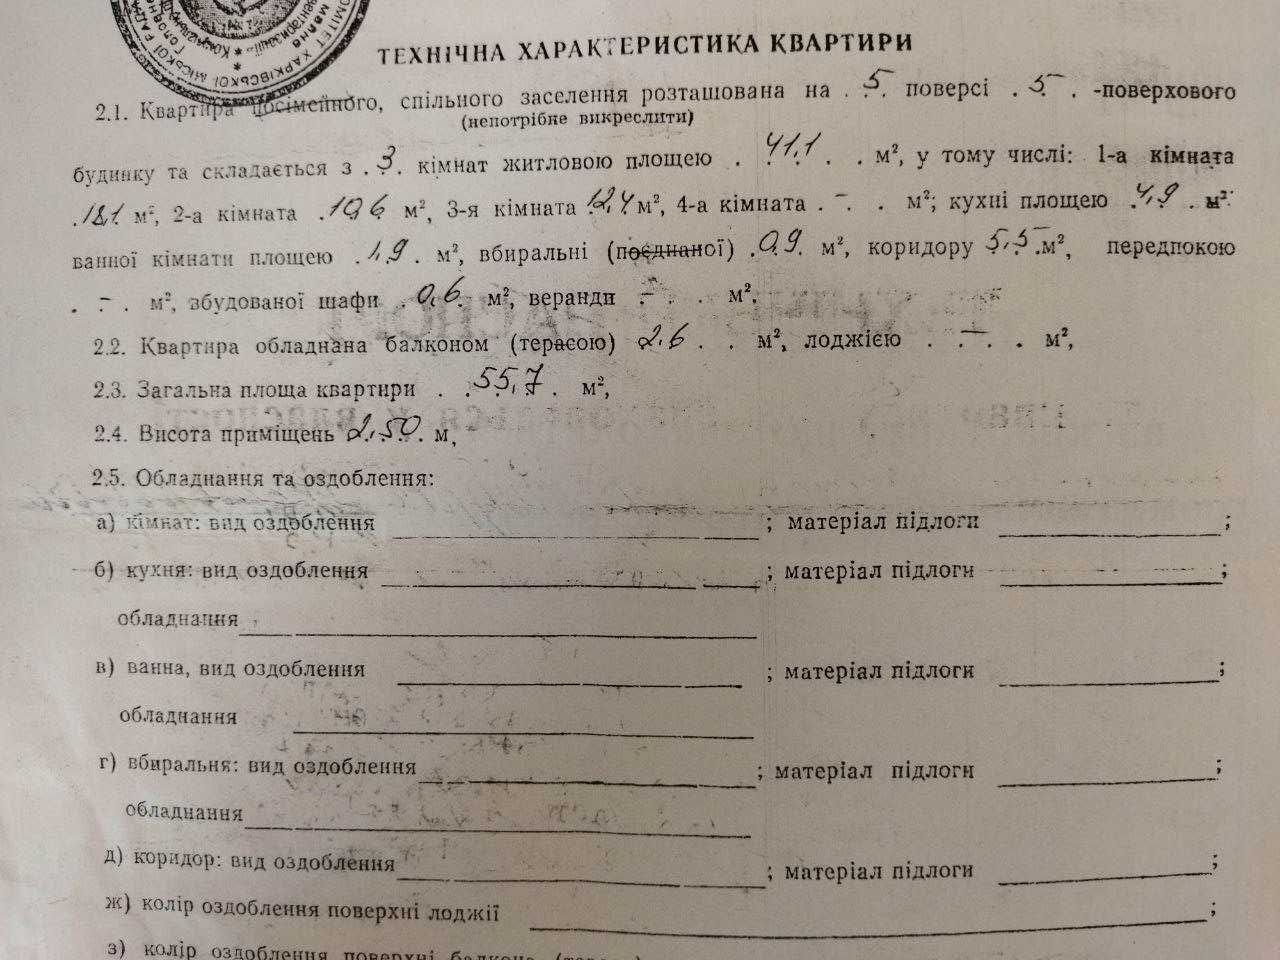 ТЕХНІЧНА ХАРАКТЕРИСТИКА КВАРТИРИ
2.1. Квартира посімейного, спільного заселення розташована на . 5 . поверсі . 5 . -поверхового
(непотрібне викреслити)
будинку та складається з . 3 . кімнат житловою площею . 41,1 . . м², у тому числі: 1-а кімната
. 18,1 м², 2-а кімната . 10,6 м², 3-я кімната 12,4 м², 4-а кімната . – . . м²; кухні площею . 4,9 . м².
ванної кімнати площею . 1,9 . м², вбиральні (поєднаної) . 0,9 . м², коридору 5,5 . м², передпокою
. – . м², збудованої шафи . 0,6 м², веранди . – . . м².
2.2. Квартира обладнана балконом (терасою) 2,6 . . м², лоджією . – . . м²,
2.3. Загальна площа квартири . . 55,7 . м²,
2.4. Висота приміщень 2,50 . м,
2.5. Обладнання та оздоблення:
а) кімнат: вид оздоблення ; матеріал підлоги ;
б) кухня: вид оздоблення ; матеріал підлоги ;
обладнання
в) ванна, вид оздоблення ; матеріал підлоги ;
обладнання
г) вбиральня: вид оздоблення ; матеріал підлоги ;
обладнання
д) коридор: вид оздоблення ; матеріал підлоги ;
ж) колір оздоблення поверхні лоджії ;
з) колір оздоблення поверхні балкона